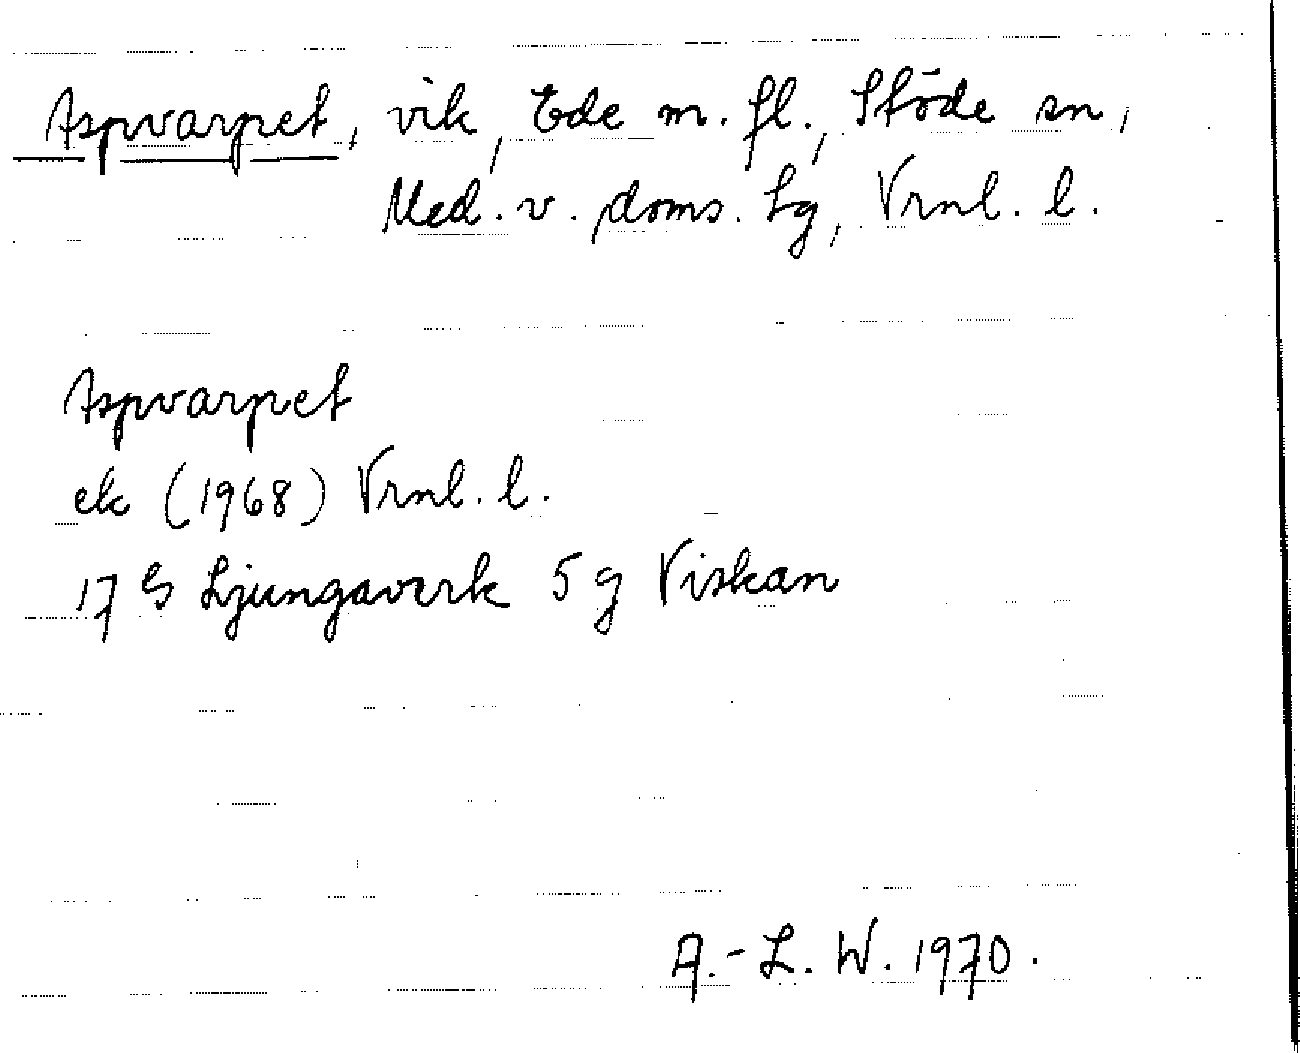 Aspvarpet, vik, Ede m. fl., Stöde sn,
Med. v. doms. Lg, Vrnl. l.
Aspvarpet
ek (1968) Vrnl. l.
17 G Ljungaverk 5 g Viskan
A.-L. W. 1970.